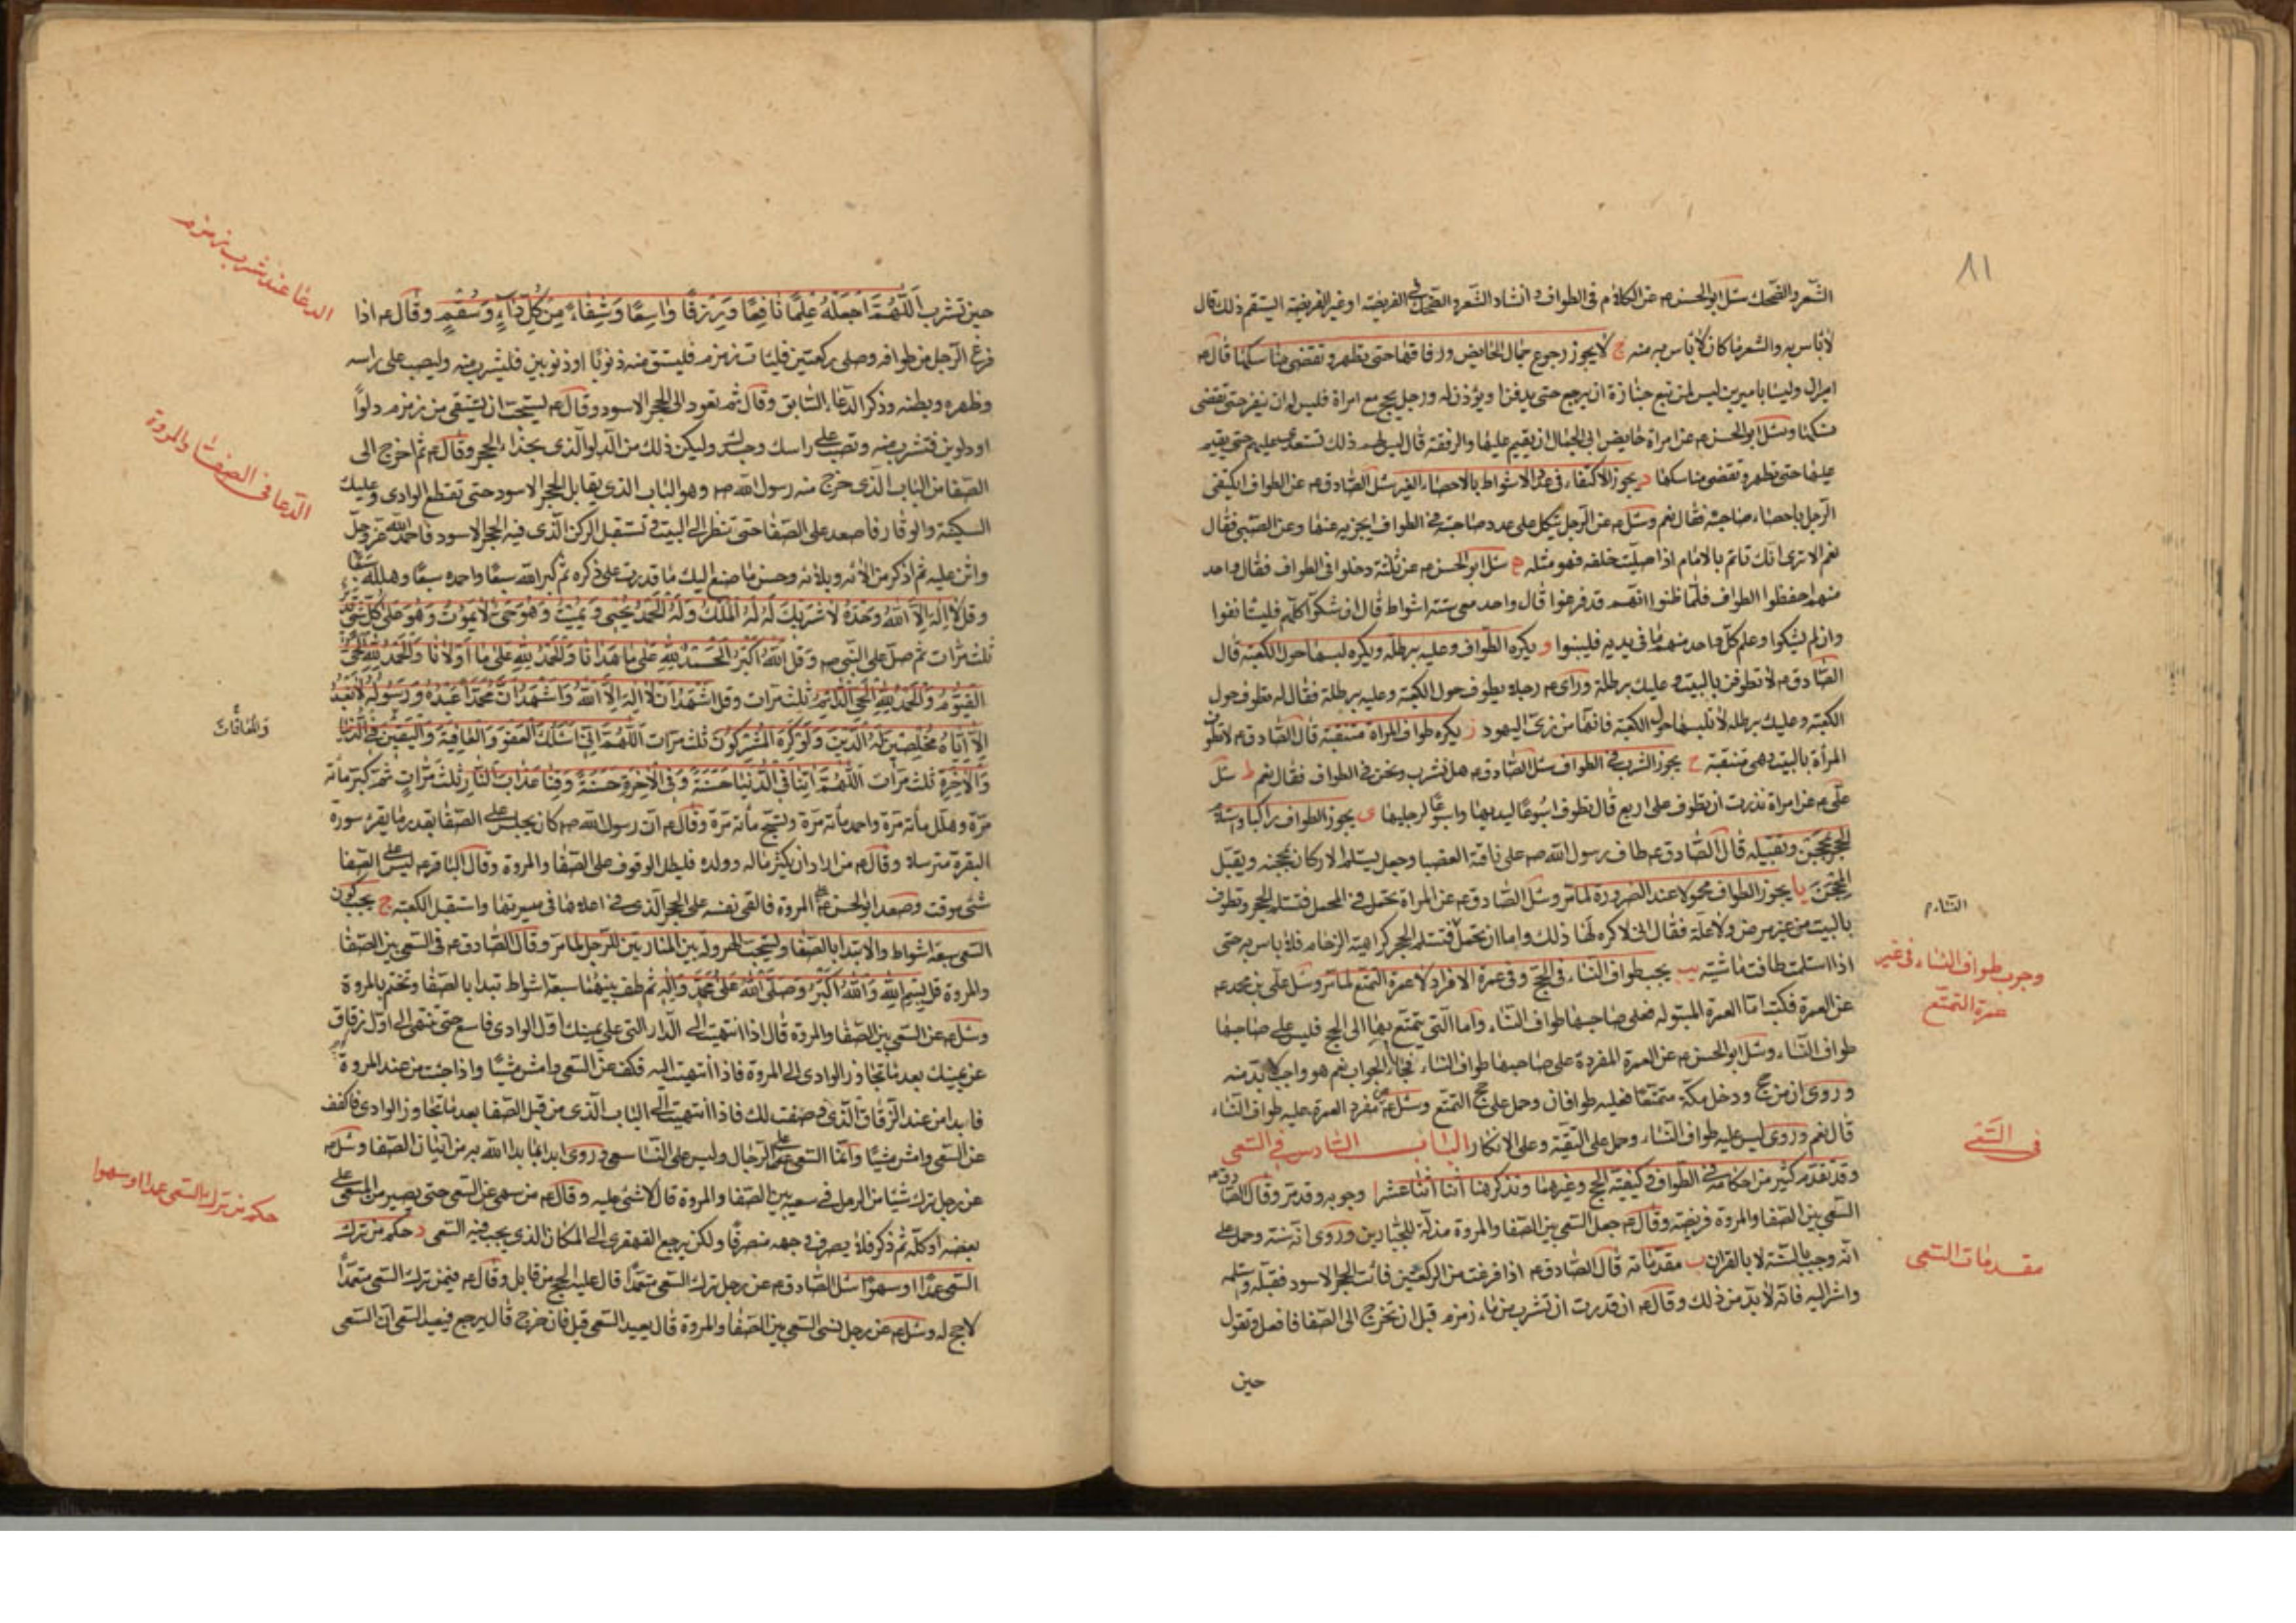 ٨١
الشعر والضحك سئل ابو الحسن ع عن الكلام فى الطواف و انشاد الشعر و الضحك فى الفريضة او غير الفريضة ايستقيم ذلك قال
لا باس به والشعر ما كان لا باس به منه ج لا يجوز رجوع جمال الحايض ورفاقها حتى تطهر و تقضى مناسكها قال ع
اميران وليسا باميرين ليس لمن تبع جنازة ان يرجع حتى يدفن او يؤذن له ورجل يحج مع امراة فليس له ان ينفر حتى تقضى
نسكها وسئل ابو الحسن ع عن امراة حايض ابى الجمال ان يقيم عليها والرفقة قال ليس لهم ذلك تستعدى عليهم حتى يقيم
عليها حتى تطهر و تقضى مناسكها د يجوز الاكتفاء فى عدد الاشواط بالاحصاء الغير سئل الصادق ع عن الطواف ايكتفى
الرجل باحصاء صاحبه فقال نعم وسئل ع عن الرجل يتكل على عدد صاحبته فى الطواف ايجزيه عنها وعن الصبى فقال
نعم الا ترى انك تاتم بالامام اذا صليت خلفه فهو مثله ه سئل ابو الحسن ع عن ثلثة دخلوا فى الطواف فقال واحد
منهم احفظوا الطواف فلما ظنوا انهم قد فرغوا قال واحد معى ستة اشواط قال ان شكوا كلهم فليستانفوا
وان لم يشكوا وعلم كل واحد منهم ما فى يديه فليبنوا و يكره الطواف وعليه برطلة ويكره لبسها حول الكعبة قال
الصادق ع لا تطوفن بالبيت و عليك برطلة وراى ع رجلا يطوف حول الكعبة وعليه برطلة فقال له تطوف حول
الكعبة وعليك برطلة لا تلبسها حول الكعبة فانها من زى اليهود ز يكره طواف المراة متنقبة قال الصادق ع لا تطوف
المرأة بالبيت وهى متنقبة ح يجوز الشرب فى الطواف سئل الصادق ع هل نشرب ونحن فى الطواف فقال نعم ط سئل
على ع عن امراة نذرت ان تطوف على اربع قال تطوف اسبوعا ليديها واسبوعا لرجليها ى يجوز الطواف راكبا واستلام
الحجر بمحجن وتقبيله قال الصادق ع طاف رسول الله ص على ناقته العضبا وجعل يستلم الاركان بمحجنه ويقبل
المحجن يا يجوز الطواف محمولا عند الضرورة لما مر وسئل الصادق ع عن المراة تحمل فى المحمل فتستلم الحجر وتطوف
بالبيت من غير مرض ولا علة فقال انى لاكره لها ذلك واما ان تحمل فتستلم الحجر كراهية الزحام فلا باس به حتى
اذا استلمت طافت ماشية يب يجب طواف النساء فى الحج و فى عمرة الافراد لا عمرة التمتع لما مر وسئل على بن محمد ع
عن العمرة فكتب اما العمرة المبتولة فعلى صاحبها طواف النساء واما التى يتمتع بها الى الحج فليس على صاحبها
طواف النساء وسئل ابو الحسن ع عن العمرة المفردة على صاحبها طواف النساء فجاء الجواب نعم هو واجب لا بد منه
و روى ان من حج ودخل مكة متمتعا فعليه طوافان وحمل على حج التمتع وسئل ع عن مفرد العمرة عليه طواف النساء
قال نعم وروى ليس عليه طواف النساء وحمل على التقية وعلى الانكار الباب السادس فى السعى
وقد تقدم كثير من احكامه فى الطواف و كيفية الحج وغيرهما ونذكر هنا اثنا عشر ا وجوبه وقد مر وقال الصادق ع
السعى بين الصفا والمروة فريضة وقال ع جعل السعى بين الصفا والمروة مذلة للجبارين وروى انه سنة وحمل على
انه وجب بالسنة لا بالقران ب مقدماته قال الصادق ع اذا فرغت من الركعتين فائت الحجر الاسود فقبله واستلمه
واشر اليه فانه لا بد من ذلك وقال ع ان قدرت ان تشرب من ماء زمزم قبل ان تخرج الى الصفا فافعل وتقول
حين
وجوب طواف النساء فى غير
عمرة التمتع
فى السعى
مقدمات السعى
حين تشرب اَللّهُمَّ اجْعَلْهُ عِلْمًا نَافِعًا وَرِزْقًا وَاسِعًا وَشِفَاءً مِنْ كُلِّ دَاءٍ وَسُقْمٍ وقال ع اذا
فرغ الرجل من طوافه وصلى ركعتين فليات زمزم فليستق منه ذنوبا او ذنوبين فليشرب منه وليصب على راسه
وظهره وبطنه وذكر الدعاء السابق وقال ثم تعود الى الحجر الاسود وقال ع يستحب ان يستقى من زمزم دلوا
او دلوين فتشرب منه وتصب على راسك وجسدك وليكن ذلك من الدلو الذى بحذاء الحجر وقال ع ثم اخرج الى
الصفا من الباب الذى خرج منه رسول الله ص وهو الباب الذى يقابل الحجر الاسود حتى تقطع الوادى وعليك
السكينة والوقار فاصعد على الصفا حتى تنظر الى البيت و تستقبل الركن الذى فيه الحجر الاسود فاحمد الله عز وجل
واثن عليه ثم اذكر من الائه وبلائه وحسن ما صنع اليك ما قدرت على ذكره ثم كبر الله سبعا واحمده سبعا وهلله سبعا
وقل لا اِلهَ اِلاَّ اللهُ وَحْدَهُ لا شَرِيكَ لَهُ لَهُ الْمُلْكُ وَلَهُ الْحَمْدُ يُحْيِى وَيُمِيتُ وَهُوَ حَىٌّ لا يَمُوتُ وَهُوَ عَلى كُلِّ شَىْءٍ قَدِيرٌ
ثلث مرات ثم صل على النبى ص وقل اللهُ اَكْبَرُ الْحَمْدُ للهِ عَلى مَا هَدَانَا وَالْحَمْدُ للهِ عَلى مَا اَوْلانَا وَالْحَمْدُ للهِ الْحَىِّ
الْقَيُّومِ وَالْحَمْدُ للهِ الْحَىِّ الدَّائِمِ ثلث مرات وقل اَشْهَدُ اَنْ لا اِلهَ اِلاَّ اللهُ وَاَشْهَدُ اَنَّ مُحَمَّدًا عَبْدُهُ وَرَسُولُهُ لا نَعْبُدُ
اِلاَّ اِيَّاهُ مُخْلِصِينَ لَهُ الدِّينَ وَلَوْ كَرِهَ الْمُشْرِكُونَ ثلث مرات اَللّهُمَّ اِنِّى اَسْئَلُكَ الْعَفْوَ وَالْعَافِيَةَ وَالْيَقِينَ فِى الدُّنْيَا
وَالْآخِرَةِ ثلث مرات اَللّهُمَّ اتِنَا فِى الدُّنْيَا حَسَنَةً وَفِى الْآخِرَةِ حَسَنَةً وَقِنَا عَذَابَ النَّارِ ثلث مرات ثم كبر مأته
مرة وهلل مأته مرة واحمد مأته مرة وتسبح مأته مرة وقال ع ان رسول الله ص كان يجلس على الصفا بقدر ما يقرء سورة
البقرة مترسلا وقال ع من اراد ان يكثر ماله وولده فليطل الوقوف على الصفا والمروة وقال الباقر ع ليس على الصفا
شىء موقت وصعد ابو الحسن ع المروة فالقى نفسه على الحجر الذى فى اعلاها فى ميسرتها واستقبل الكعبة ج يجب كون
السعى سبعة اشواط والابتدا بالصفا ويستحب الهرولة بين المنارتين للرجل لما مر وقال الصادق ع فى السعى بين الصفا
والمروة قل بِسْمِ اللهِ وَاللهُ اَكْبَرُ وَصَلَّى اللهُ عَلى مُحَمَّدٍ وَالِهِ ثم طف بينهما سبعة اشواط تبدا بالصفا وتختم بالمروة
وسئل ع عن السعى بين الصفا والمروة قال اذا انتهيت الى الدار التى على يمينك اول الوادى فاسع حتى تنتهى الى اول زقاق
عن يمينك بعد ما تجاوز الوادى الى المروة فاذا انتهيت اليه فكف عن السعى وامش مشيا واذا جئت من عند المروة
فابدا من عند الزقاق الذى وصفت لك فاذا انتهيت الى الباب الذى من قبل الصفا بعد ما تجاوز الوادى فاكفف
عن السعى وامش مشيا وانما السعى على الرجال وليس على النسا سعى وروى ابدا بما بدا الله به من اتيان الصفا وسئل ع
عن رجل ترك شيئا من الرمل فى سعيه بين الصفا والمروة قال لا شىء عليه وقال ع من سهى عن السعى حتى يصير من المسعى على
بعضه او كله ثم ذكر فلا يصرف وجهه منصرفا ولكن يرجع القهقرى الى المكان الذى يجب فيه السعى د حكم من ترك
السعى عمدا او سهوا سئل الصادق ع عن رجل ترك السعى متعمدا قال عليه الحج من قابل وقال ع فيمن ترك السعى متعمدا
لا حج له وسئل ع عن رجل نسى السعى بين الصفا والمروة قال يعيد السعى قيل فان خرج قال يرجع فيعيد السعى ان السعى
الدعا عند شرب زمزم
الدعا فى الصفا والمروة
وَالْمُعَافَاتَ
حكم من ترك السعى عمدا او سهوا